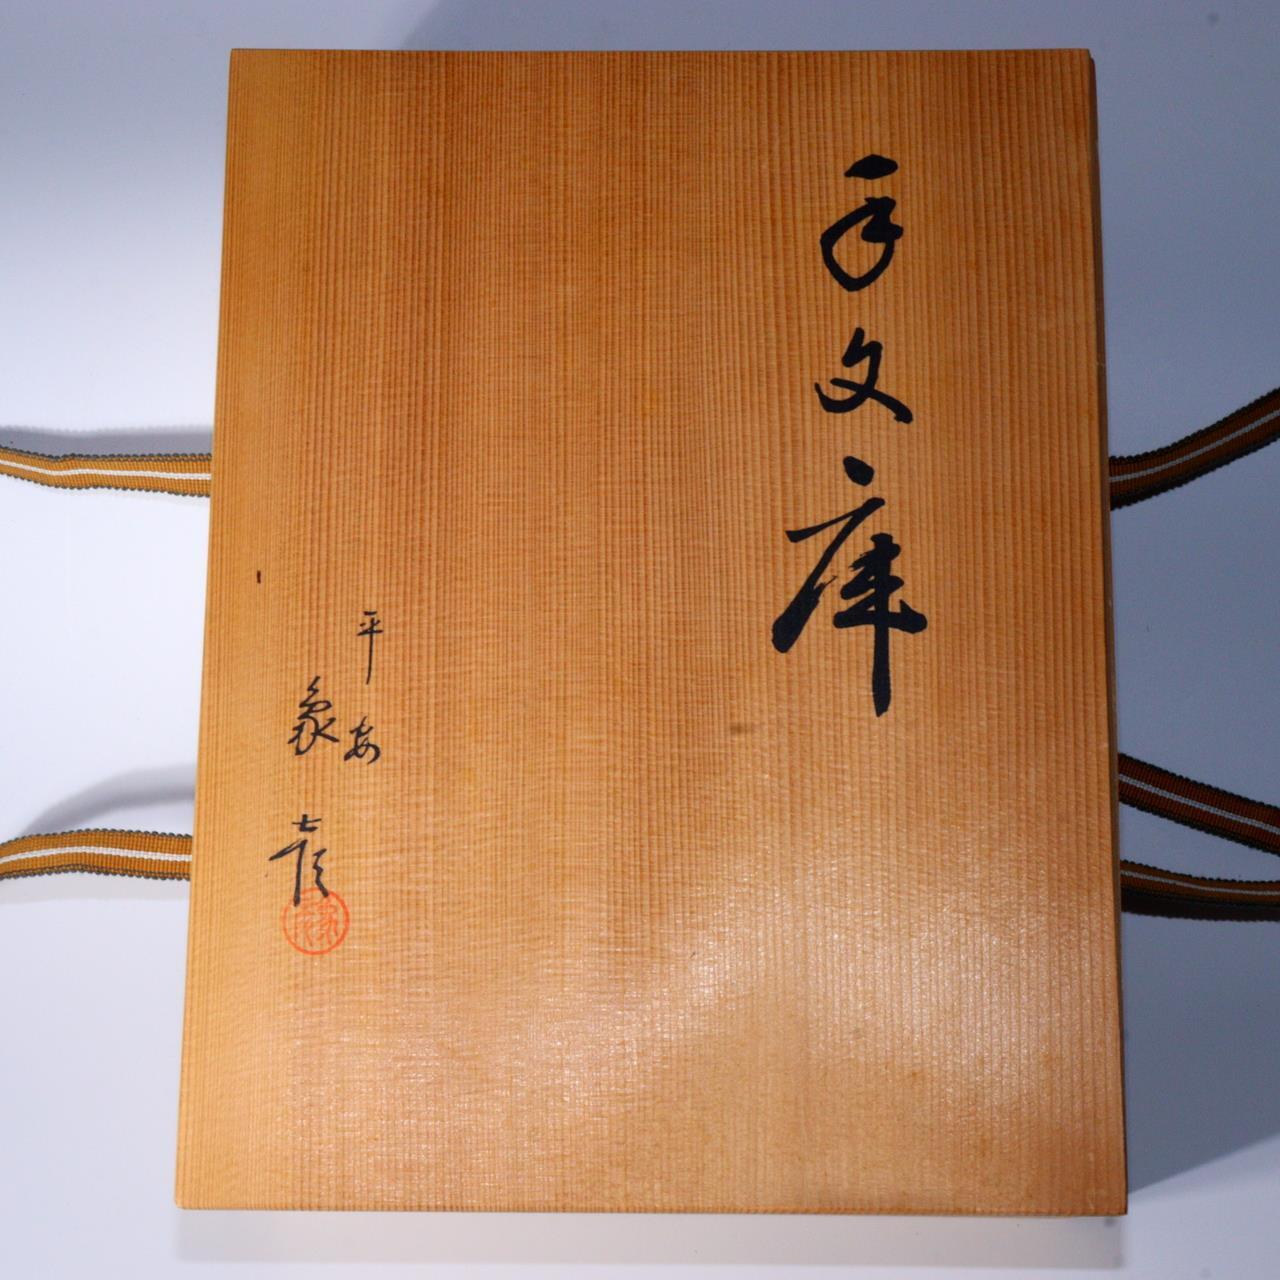 手文庫
平安
象彦